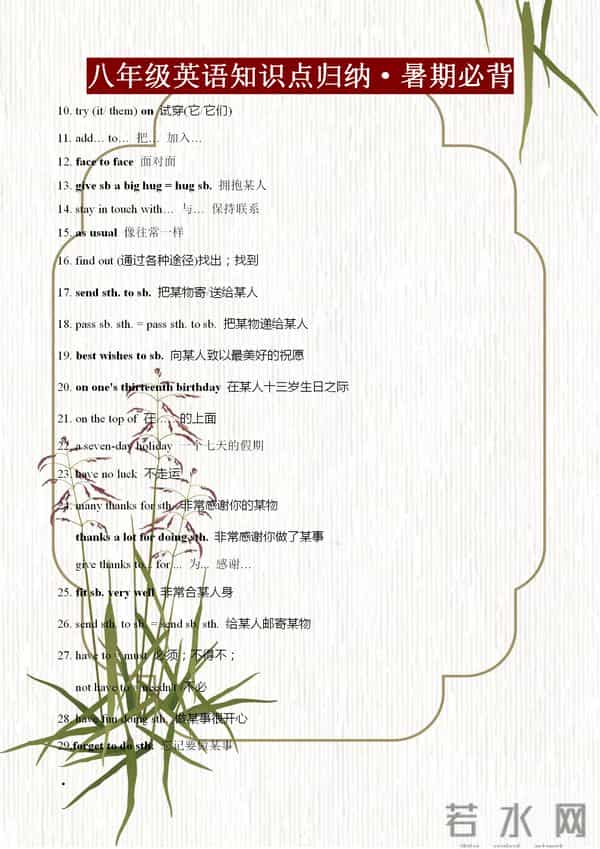 八年级英语知识点归纳·暑期必背
10. try (it/ them) on 试穿(它/它们)
11. add… to… 把… 加入…
12. face to face 面对面
13. give sb a big hug = hug sb. 拥抱某人
14. stay in touch with… 与… 保持联系
15. as usual 像往常一样
16. find out (通过各种途径)找出；找到
17. send sth. to sb. 把某物寄/送给某人
18. pass sb. sth. = pass sth. to sb. 把某物递给某人
19. best wishes to sb. 向某人致以最美好的祝愿
20. on one's thirteenth birthday 在某人十三岁生日之际
21. on the top of 在……的上面
22. a seven-day holiday 一个七天的假期
23. have no luck 不走运
24. many thanks for sth. 非常感谢你的某物
thanks a lot for doing sth. 非常感谢你做了某事
give thanks to... for ... 为... 感谢…
25. fit sb. very well 非常合某人身
26. send sth. to sb. = send sb. sth. 给某人邮寄某物
27. have to = must 必须；不得不；
not have to = needn't 不必
28. have fun doing sth. 做某事很开心
29.forget to do sth. 忘记要做某事
若水网